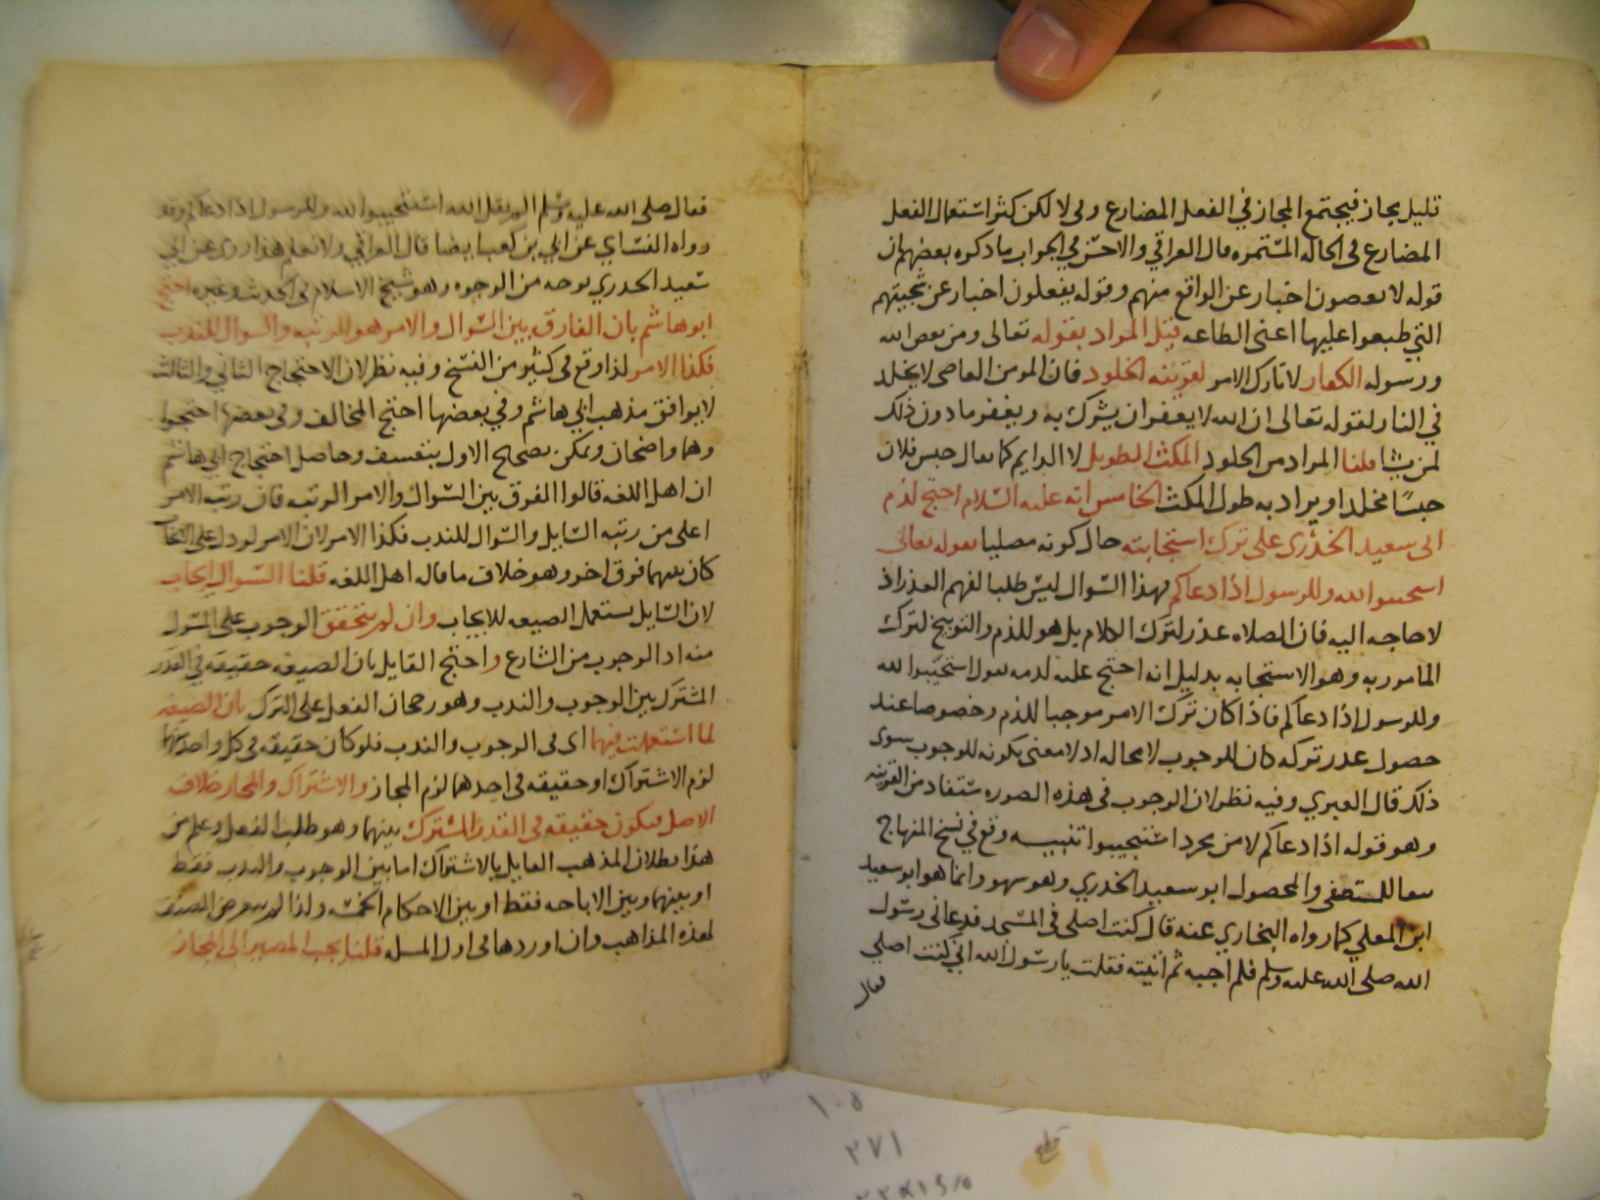 قليل يجاز فيجتمع المجاز في الفعل المضارع وفي لا لكن كثر استعمال الفعل
المضارع في الحاله المستمره قال العراقي والاحسن في الجواب ما ذكره بعضهم ان
قوله لا يعصون اخبار عن الواقع منهم وقوله يفعلون اخبار عن سجيتهم
التي طبعوا عليها اعني الطاعه قيل المراد بقوله تعالى ومن يعص الله
ورسوله الكفار لا تارك الامر لقرينه الخلود فان المومن العاصي لا يخلد
في النار لقوله تعالى ان الله لا يغفر ان يشرك به ويغفر ما دون ذلك
لمن يشا قلنا المراد من الخلود المكث الطويل لا الدايم كما يقال حبس فلان
حبسًا مخلدا ويراد به طول المكث الخامس انه عليه السلام احتج لذم
ابي سعيد الخدري على ترك استجابته حال كونه مصليا بقوله تعالى
استجيبوا لله وللرسول اذا دعاكم فهذا السوال ليس طلبا لفهم العذر اذ
لا حاجه اليه فان الصلاه عذر لترك الكلام بل هو للذم والتوبيخ لترك
المامور به وهو الاستجابه بدليل انه احتج عليه لذمه بقول استجيبوا لله
وللرسول اذا دعاكم فاذا كان ترك الامر موجبا للذم وخصوصا عند
حصول عذر تركه كان للوجوب لا محاله اذ لا معنى بكونه للوجوب سوى
ذلك قال العبري وفيه نظر لان الوجوب في هذه الصوره ستفاد من القرينه
وهو قوله اذا دعاكم لا من مجرد استجيبوا تنبيه وقع في نسخ المنهاج
تبعا للمستصفى والمحصول ابو سعيد الخدري وهو سهو وانما هو ابو سعيد
ابن المعلي كما رواه البخاري عنه قال كنت اصلي في المسجد فدعاني رسول
الله صلى الله عليه وسلم فلم اجبه ثم اتيته فقلت يا رسول الله اني كنت اصلي
فقال
فقال صلى الله عليه وسلم الم يقل الله استجيبوا لله وللرسول اذا دعاكم وقد
رواه النساي عن ابي بن كعب ايضا قال العراقي ولا نعلم هذا روى عن ابي
سعيد الخدري بوجه من الوجوه وهو شيخ الاسلام في الحديث وغيره احتج
ابو هاشم بان الفارق بين السوال والامر هو للرتبه والسوال للندب
فكذا الامر لذا وقع في كثير من النسخ وفيه نظر لان الاحتجاج الثاني والثالث
لا يوافق مذهب ابي هاشم وفي بعضها احتج المخالف وفي بعضها احتجوا
وهما واضحان ويمكن تصحيح الاول بتعسف وحاصل احتجاج ابي هاشم
ان اهل اللغه قالوا الفرق بين السوال والامر الرتبه فان رتبه الامر
اعلى من رتبه السايل والسوال للندب فكذا الامر لان الامر لو دل على
كان بينهما فرق اخر وهو خلاف ما قاله اهل اللغه قلنا السوال ايجاب
لان السايل يستعمل الصيغه للايجاب وان لم يتحقق الوجوب على المسول
منه اذ الوجوب من الشارع واحتج القايل بان الصيغه حقيقه في القدر
المشترك بين الوجوب والندب وهو رجحان الفعل على الترك بان الصيغه
لما استعملت فيهما اي في الوجوب والندب فلو كان حقيقه في كل واحد منهما
لزم الاشتراك او حقيقه في احدهما لزم المجاز والاشتراك والمجاز خلاف
الاصل فيكون حقيقه في القدر المشترك بينهما وهو طلب الفعل وعلم من
هذا بطلان المذهب القايل بالاشتراك اما بين الوجوب والندب فقط
او بينهما وبين الاباحه فقط او بين الاحكام الخمسه ولذا لم يتعرض المصنف
لهذه المذاهب وان اوردها في اول المسله قلنا يجب المصير الى المجاز
١٠٥
٢٧١